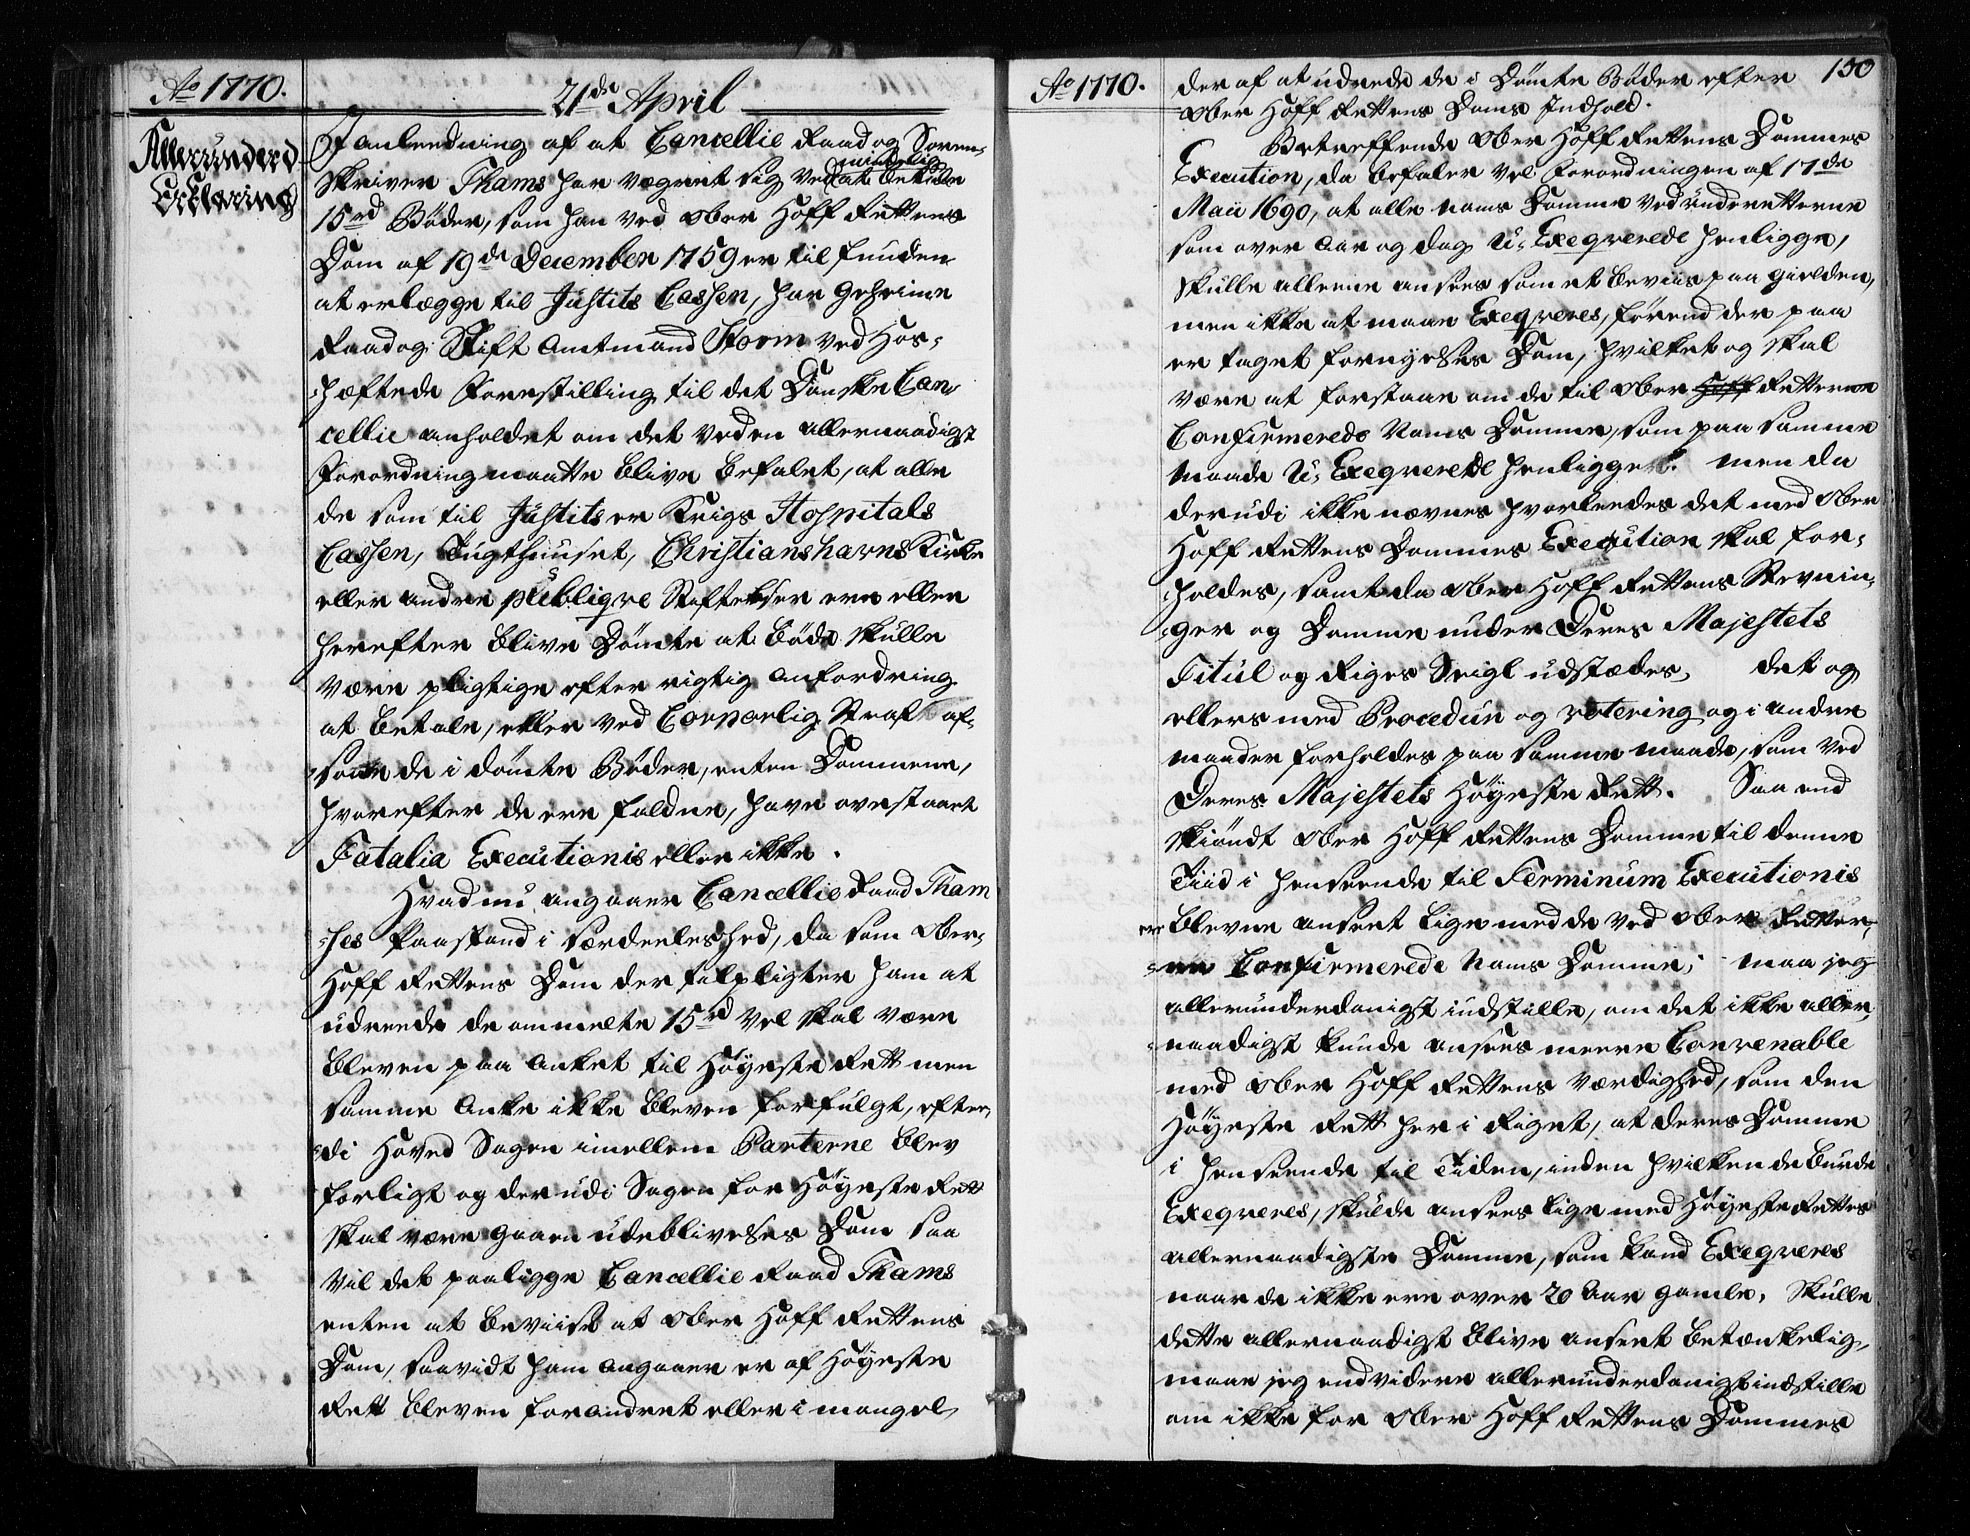 Ao 1770.
21de April
Allerunderd
Ercklæring
I anleedning af at Cancellie Raad og Soren-
skriver Thams har vægret sig ved at betale
mindelig
15rd Bøder, som han ved Ober Hoff Rettens
Dom af 19de December 1759 er til funden
at erlægge til Justits Cassen, har Geheime
Raad og Stift Amtmand Storm ved Hos-
hæftede Forestilling til det Danske Can-
cellie anholdet om det ved en allernaadigst
Forordning maatte blive befalet, at alle
de som til Justits er Krigs Hospitals
Cassen, Tugthuuset, Christianshavns Kirke
eller andre publiqve Stiftelser ere eller
herefter blive Dømte at bøde skulle
være pligtige efter rigtig Anfordring
at betale, eller ved Corporlig Straf af-
sone de i dømte Bøder, enten Dommene,
hvorefter de ere faldne, have overstaaet
Fatalia Executionis eller ikke.
Hvad nu angaaer Cancellie Raad Tham
ses Paastand i særdeeleshed, da som Ober-
Hoff Rettens Dom der tilpligter ham at
udreede de ommelte 15rd vel skal være
bleven paa Anket til Høyeste Rett men
samme Anke ikke bleven forfulgt, efter-
di Hoved Sagen imellem Parterne blev
forligt og der udi Sagen for Høyeste Rett
skal være gaaen udeblivelses Dom saa
vil det paaligge Cancellie Raad Thams
enten at beviise at Ober Hoff Rettens
Dom, saavidt ham angaaer er af Høyeste
Rett bleven forandret eller i mangel
Ao 1770.
150
der af at udrede de i Dømte Bøder efter
Ober Hoff Rettens Doms Indhold.
Betreffende Ober Hoff Rettens Dommes
Execution, da befaler vel Forordningen af 17de
Maii 1690, at alle Nams Domme ved underretterne
som over Aar og Dag U-Exeqverede henligge,
skulle alleene ansees som et beviis paa Gielden,
men ikke at maae Exeqveres, førend der paa
er taget fornyelses Dom, hvilket og skal
være at forstaae om de til Ober Hoff Retterne
Confirmerede Nams Domme, som paa samme
maade U-Exeqverede henligger. men da
derudi ikke nævnes hvorleedes det med Ober
Hoff Rettens Dommes Execution skal for-
holdes, samt da Ober Hoff Rettens Stevnin-
ger og Domme under Deres Majestets
Titul og Riges Seigl udstædes, det og
ellers med Procedur og votering og i andre
maader forholdes paa samme maade, som ved
Deres Majestets Høyeste Rett. Saa end
skiøndt Ober Hoff Rettens Domme til denne
Tiid i henseende til Terminum Executionis
ere blevne anseet lige med de ved Ober Retter-
ne Confirmerede Nams Domme; maa jeg
allerunderdanigst indstille, om det ikke aller-
naadigst kunde ansees meere Convenable
med Ober Hoff Rettens Værdighed, som den
Høyeste Rett her i Riget, at deres Domme
i henseende til Tiden, inden hvilken de burde
Exeqveres, skulde ansees lige med Høyeste Rettes
allernaadigste Domme, som kand Exeqveres
naar de ikke ere over 20 Aar gamle, skulle
dette allernaadigst blive anseet betænkelig,
maae jeg endvidere allerunderdanigst indstille
om ikke for Ober Hoff Rettens Dommes